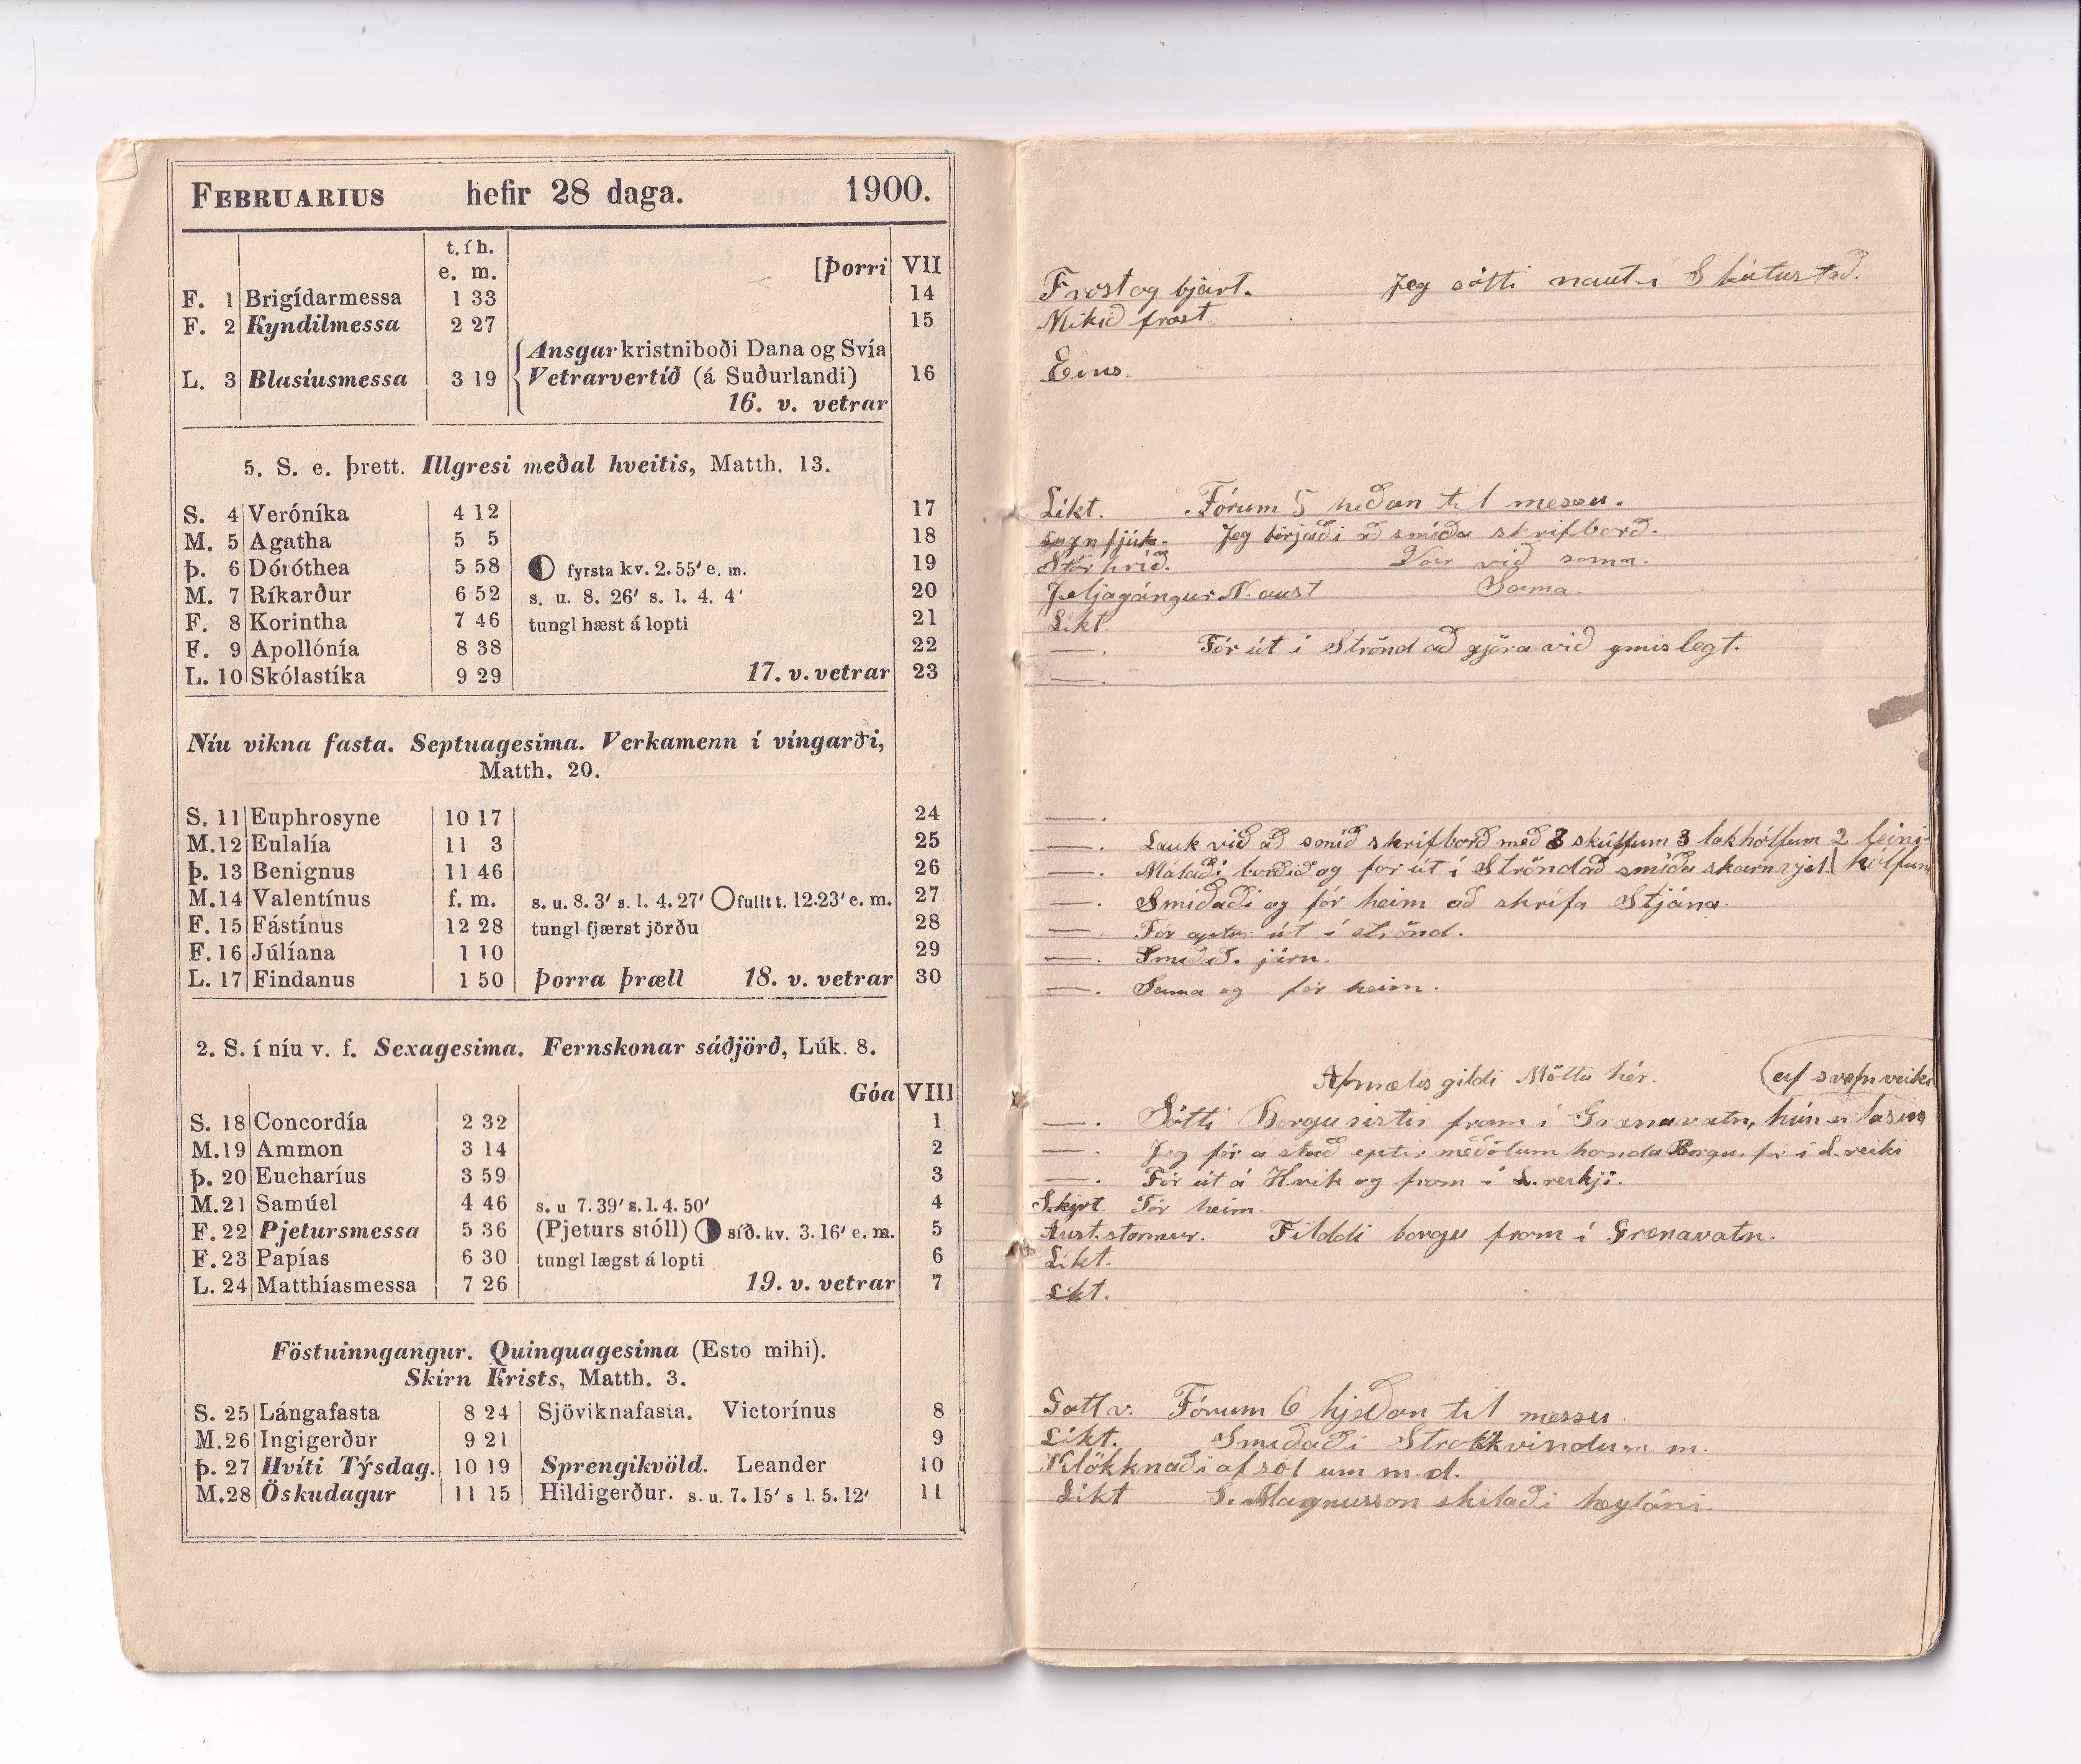 FEBRUARIUS hefir 28 daga. 1900.
t. í h.
e. m. [Þorri VII
F. 1 Brigídarmessa 1 33 14
F. 2 Kyndilmessa 2 27 15
Ansgar kristniboði Dana og Svía
L. 3 Blasíusmessa 3 19 Vetrarvertíð (á Suðurlandi) 16
16. v. vetrar
5. S. e. þrett. Illgresi meðal hveitis, Matth. 13.
S. 4 Veróníka 4 12 17
M. 5 Agatha 5 5 18
Þ. 6 Dóróthea 5 58 fyrsta kv. 2. 55' e. m. 19
M. 7 Ríkarður 6 52 s. u. 8. 26' s. l. 4. 4' 20
F. 8 Korintha 7 46 tungl hæst á lopti 21
F. 9 Apollónía 8 38 22
L. 10 Skólastíka 9 29 17. v. vetrar 23
Níu vikna fasta. Septuagesima. Verkamenn í víngarði,
Matth. 20.
S. 11 Euphrosyne 10 17 24
M. 12 Eulalía 11 3 25
Þ. 13 Benignus 11 46 26
M. 14 Valentínus f. m. s. u. 8. 3' s. l. 4. 27' fullt t. 12.23' e. m. 27
F. 15 Fástínus 12 28 tungl fjærst jörðu 28
F. 16 Júlíana 1 10 29
L. 17 Findanus 1 50 Þorra þræll 18. v. vetrar 30
2. S. í níu v. f. Sexagesima. Fernskonar sáðjörð, Lúk. 8.
Góa VIII
S. 18 Concordía 2 32 1
M. 19 Ammon 3 14 2
Þ. 20 Eucharíus 3 59 3
M. 21 Samúel 4 46 s. u 7. 39' s. l. 4. 50' 4
F. 22 Pjetursmessa 5 36 (Pjeturs stóll) síð. kv. 3. 16' e. m. 5
F. 23 Papías 6 30 tungl lægst á lopti 6
L. 24 Matthíasmessa 7 26 19. v. vetrar 7
Föstuinngangur. Quinquagesima (Esto mihi).
Skírn Krists, Matth. 3.
S. 25 Lángafasta 8 24 Sjöviknafasta. Victorínus 8
M. 26 Ingigerður 9 21 9
Þ. 27 Hvíti Týsdag. 10 19 Sprengikvöld. Leander 10
M. 28 Öskudagur 11 15 Hildigerður. s. u. 7. 15' s l. 5. 12' 11
Frost og bjart. Jeg sótti naut Skútustað.
Mikið frost.
Eins.
Líkt. Fórum 5 héðan til messu.
Jeg birjaði að smíða skrifborð.
Stór hríð. Var við sama.
Jeljagángur N. aust Sama.
Líkt.
—. Fór út í Strönd að gjöra við ymislegt.
—.
—.
—. Lauk við að smíð skrifborð með 8 skúffum 3 lokhólfum 2 leini-
—. Málaði borðið og for út í Strönd að smíða hólfum
—. Smíðaði og fór heim að skrifa Stjána.
—. Fór aptur út í strönd.
—. Smíðaði járn.
—. Sama og fór heim.
Afmælis gildi Möttu hér. af svefnveiki
—. Sótti Borgu sistir fram í Grænavatn, hún er lasin
—. Jeg fór a stað eptir meðölum handa Borgu, fór í L. veiki
—. Fór út á H.vík og fram í
Fór heim.
Aust. stormur. Filddi borgu fram í Grænavatn.
Líkt.
Líkt.
Gott v. Fórum 6 hjeðan til messu
Líkt. Smíðaði Strokkvindu m.
Klökknaði af sól um m. d.
Líkt S. Magnusson skilaði heyláni.